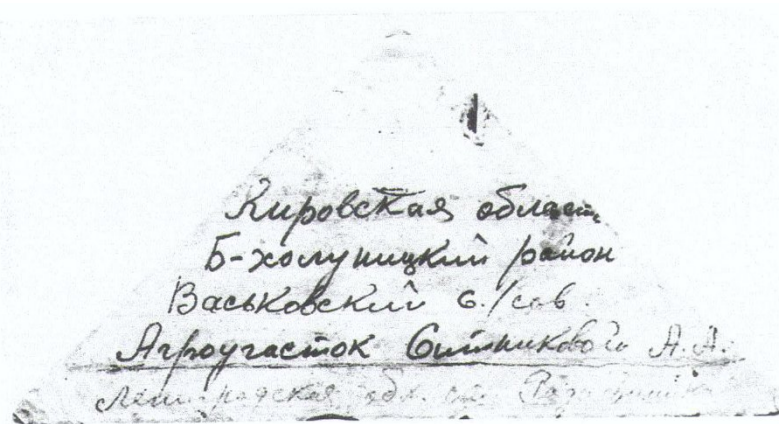 Кировская область
Б-холуницкий район
Васьковский с./сов.
Агроучасток Ситниково А.А.
Ленинградская обл.